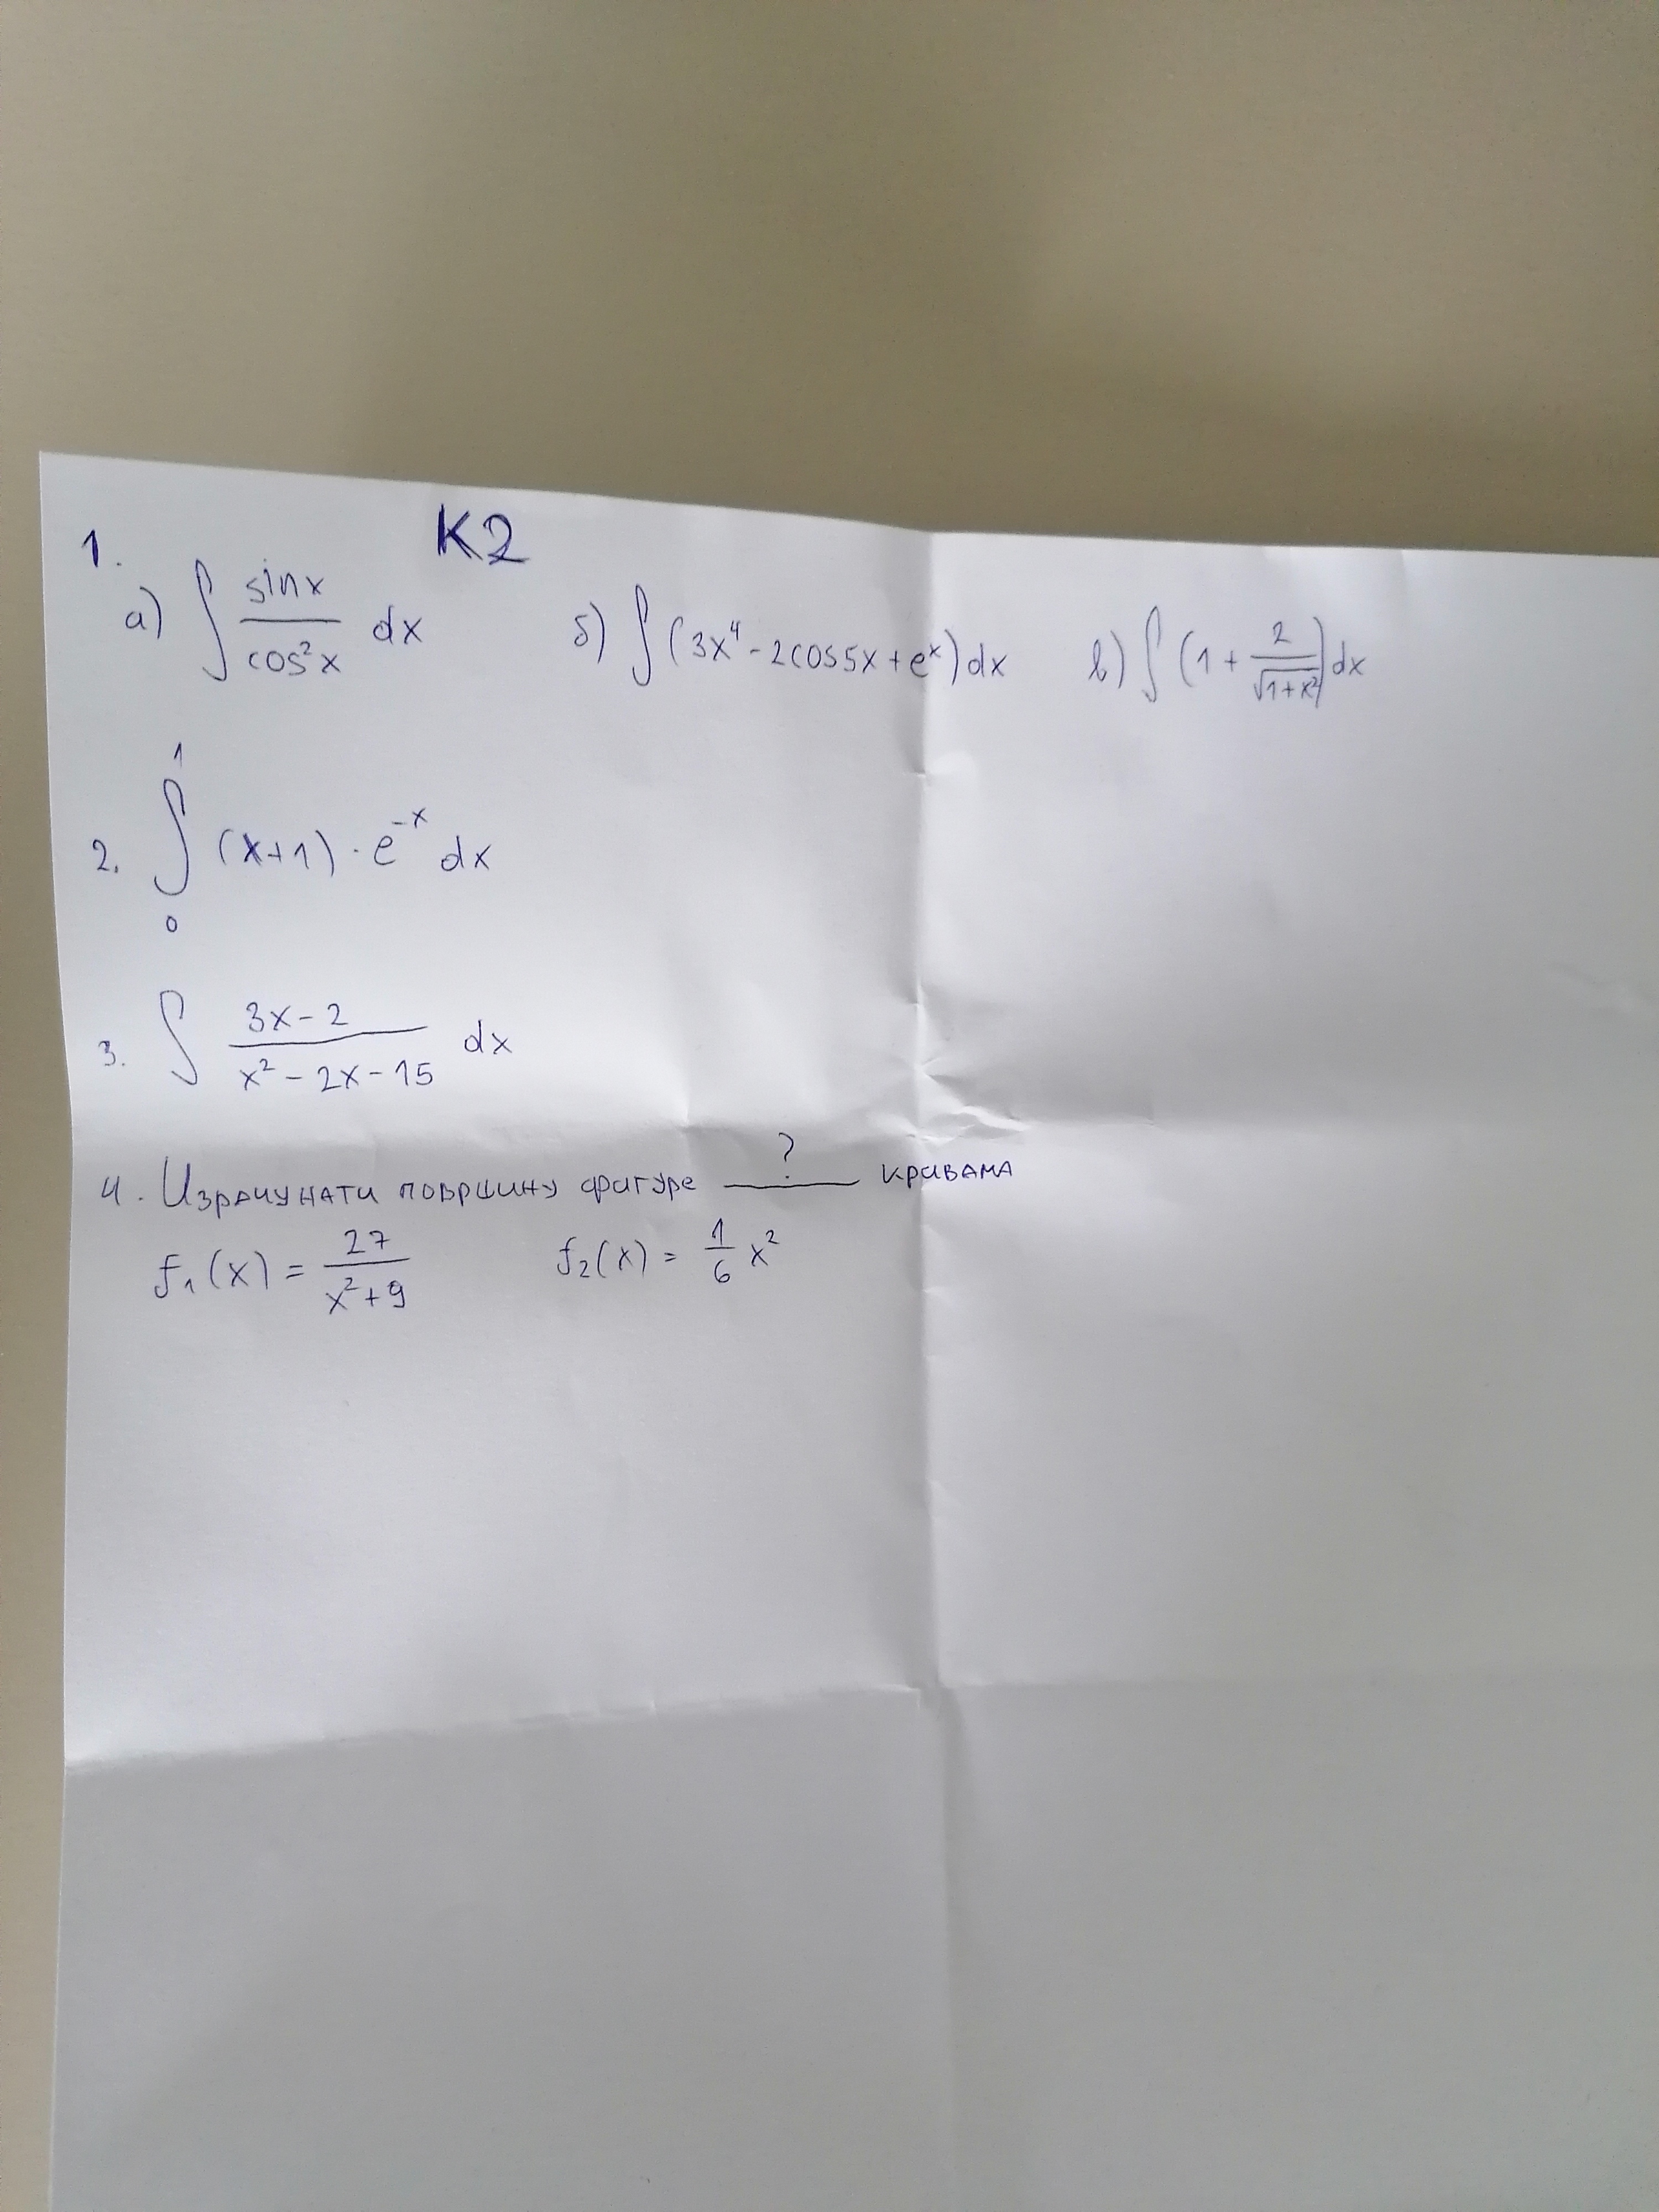 K2
1.
а) ∫ sinx/cos²x dx б) ∫ (3x⁴ - 2cos5x + eˣ) dx в) ∫ (1 + 2/√(1+x²)) dx
2. ∫₀¹ (x+1) · e⁻ˣ dx
3. ∫ (3x-2)/(x²-2x-15) dx
4. Израчунати површину фигуре ___?___ кривама
f₁(x) = 27/(x²+9) f₂(x) = 1/6 x²